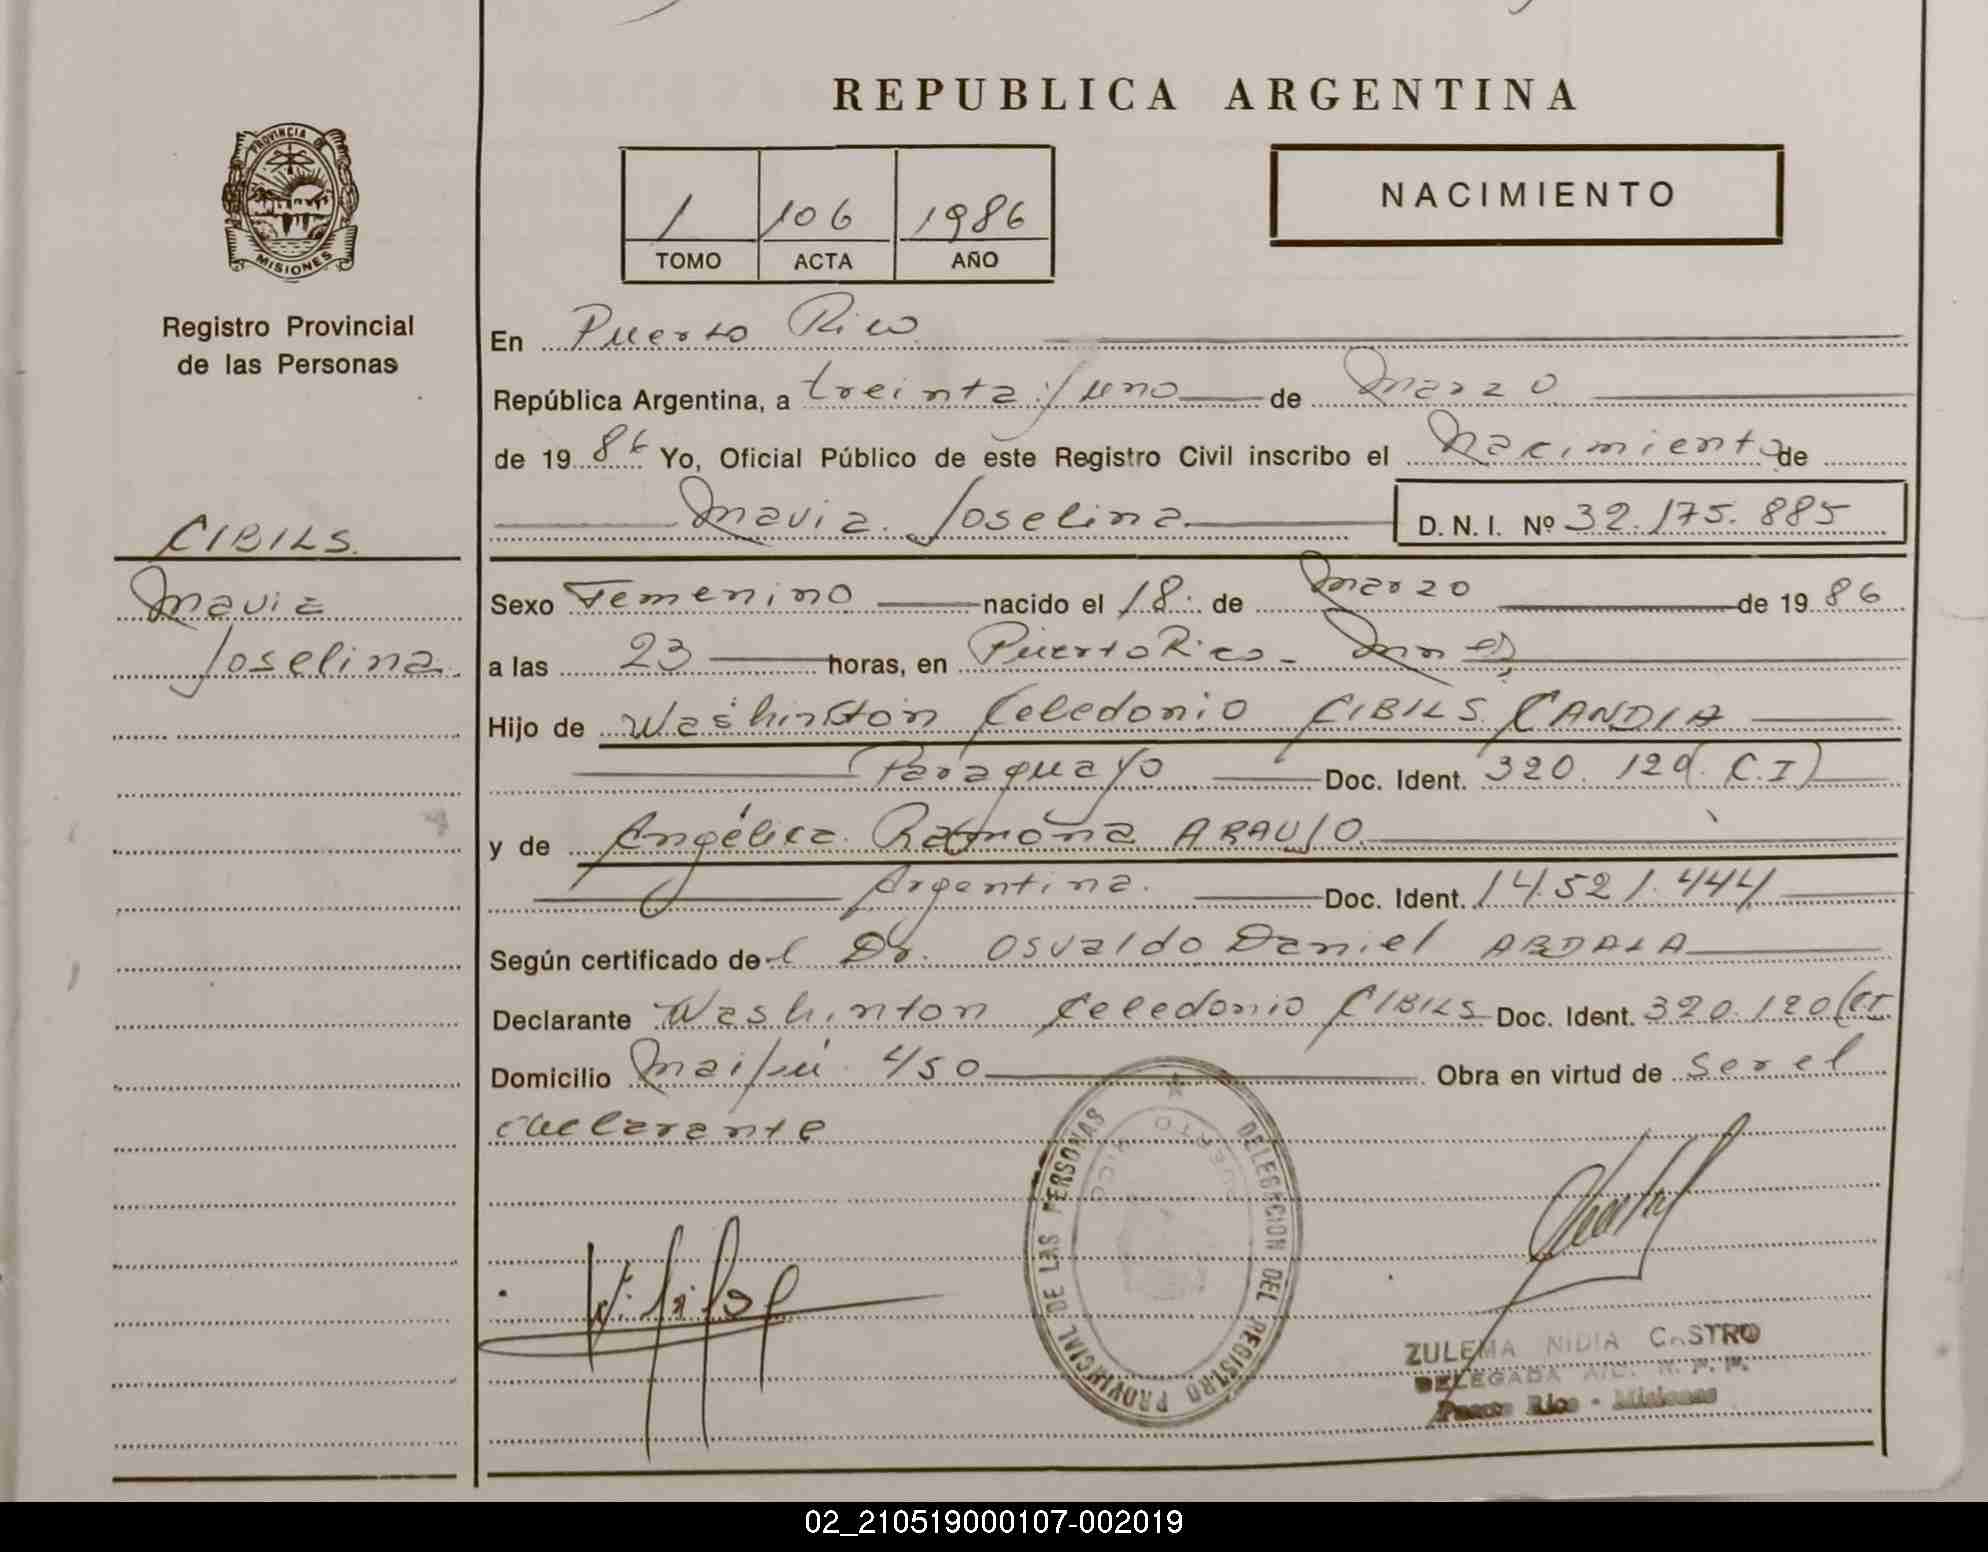 REPUBLICA ARGENTINA
PROVINCIA DE MISIONES
Registro Provincial
de las Personas
1 106 1986
TOMO ACTA AÑO
NACIMIENTO
En Puerto Rico
República Argentina, a treinta y uno de Marzo
de 1986 Yo, Oficial Público de este Registro Civil inscribo el Nacimiento de
Mavia Joselina D. N. I. Nº 32.175.885
CIBILS.
Mavia
Joselina
Sexo Femenino nacido el 18 de Marzo de 1986
a las 23 horas, en Puerto Rico - Mnes
Hijo de Washinton Celedonio CIBILS CANDIA
Paraguayo Doc. Ident. 320.120 (C.I)
y de Angélica Ramona ARAUJO
Argentina. Doc. Ident. 14.521.444
Según certificado del Dr. Osvaldo Daniel ABDALA
Declarante Washinton Celedonio CIBILS Doc. Ident. 320.120 (CI
Domicilio Maipú 450 Obra en virtud de ser el
declarante
DELEGACION DEL REGISTRO PROVINCIAL DE LAS PERSONAS
PUERTO RICO
ZULEMA NIDIA CASTRO
DELEGADA A/C. R. P. P.
Puerto Rico - Misiones
02_210519000107-002019